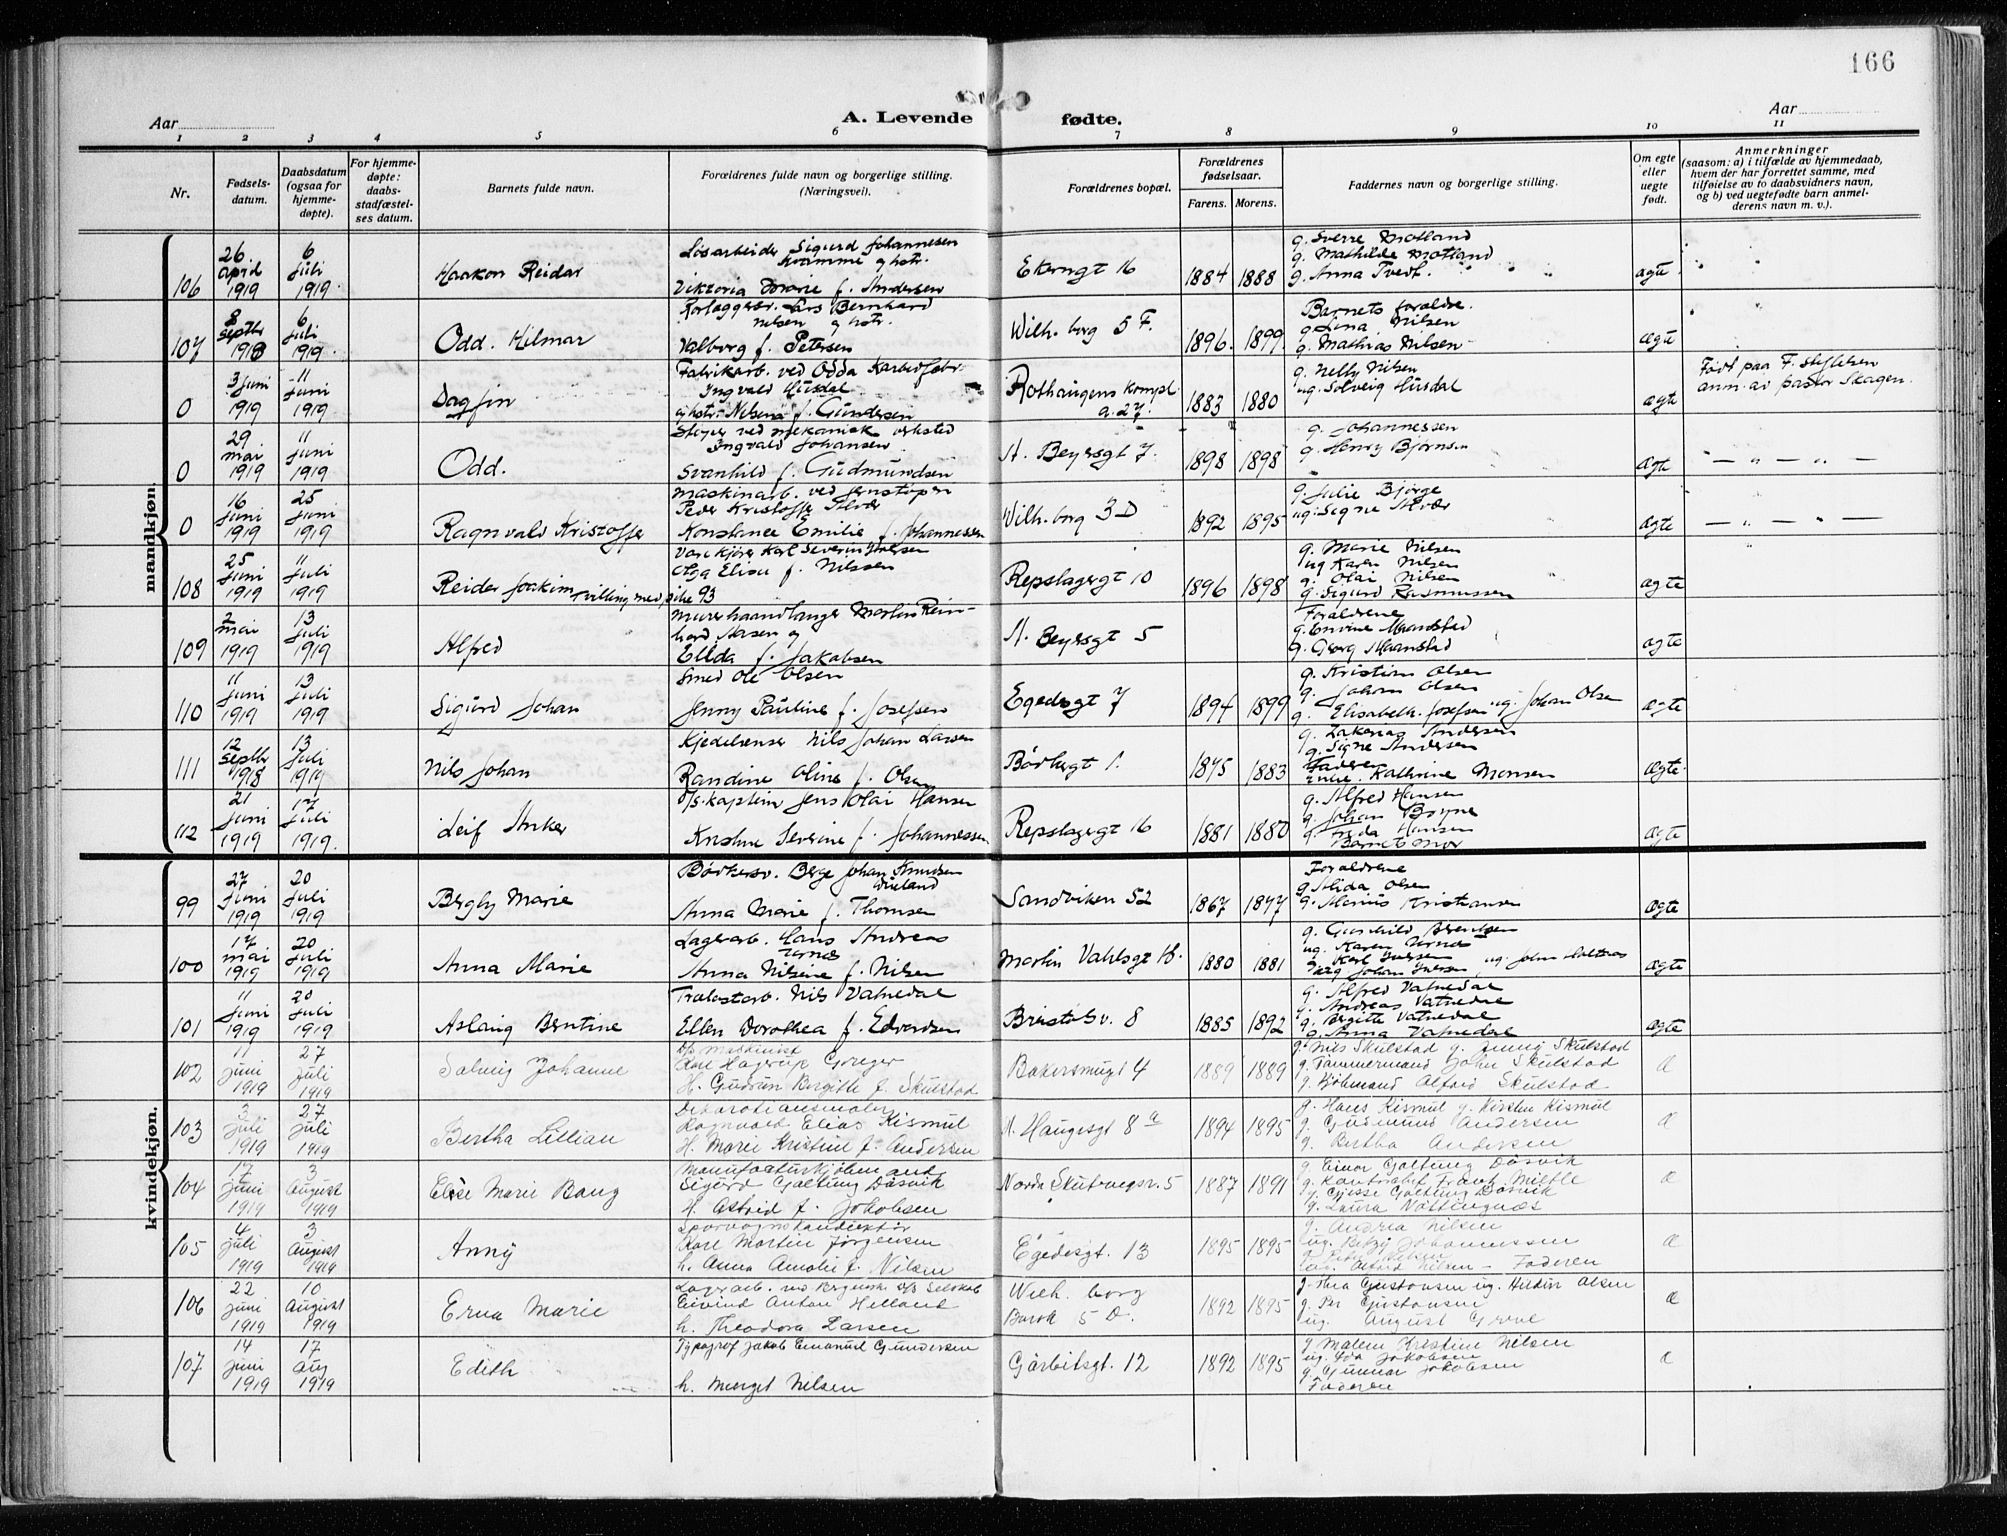 166
A. Levende fødte.
Aar
Aar
1 2 3 4 5 6 7 8 9 10 11
Nr.
Fødsels-
datum.
Daabsdatum
(ogsaa for
hjemme-
døpte).
For hjemme-
døpte:
daabs-
stadfæstel-
ses datum.
Barnets fulde navn.
Forældrenes fulde navn og borgerlige stilling.
(Næringsvei).
Forældrenes bopæl.
Forældrenes
fødselsaar.
Farens. Morens.
Faddernes navn og borgerlige stilling.
Om egte
eller
uegte
født.
Anmerkninger
(saasom: a) i tilfælde av hjemmedaab,
hvem der har forrettet samme, med
tilføielse av to daabsvidners navn,
og b) ved uegtefødte barn anmel-
derens navn m. v.).
mandkjøn.
106
26 april 1919
6 juli 1919
Haakon Reidar
Løsarbeider Sigurd Johannesen
Kvamme og hstr.
Viktoria Marie f. Andersen
Ekerngt 16
1884 1888
g. Sverre Motland
g. Mathilde Motland
g. Anna Tvedt
ægte
107
8 septbr 1918
6 juli 1919
Odd. Hilmar
Rørlæggersv. Lars Bernhard
Nilsen og hstr.
Valborg f. Petersen
Wilh. borg 5 F.
1896 1899
Barnets forældre
g. Lina Nilsen
g. Mathias Nilsen
ægte
0
3 juni 1919
11 juni 1919
Dagfin
Fabrikarb. ved Odda Karbidfabr.
Ingvald Husdal
og hstr. Nilsena f. Gundersen
Rothaugens kompl
a. 27.
1883 1880
g. Nelly Nilsen
ug. Solveig Husdal
ægte
Født paa F. stiftelsen
anm. av pastor Skagen.
0
29 mai 1919
11 juni 1919
Odd.
Støper ved mekanisk verksted
Ingvald Johansen
Svanhild f. Gudmundsen
N. Beyersgt 7.
1898 1898
g. Johannessen
g. Henry Bjørnsen
ægte
— „ — „ —
0
16 juni 1919
25 juni 1919
Ragnvald Kristoffer
Maskinarb. ved jernstøperi
Peder Kristoffer
Konstance Emilie f. Johannessen
Wilh. borg 3 D
1892 1895
g. Julie Bjørge
ug. Signe
ægte
— „ — „ —
108
25 juni 1919
11 juli 1919
Reidar Joakim tvilling med pike 93
Karl Severin Iversen
Olga Elise f. Nilssen
Repslagergt 10
1896 1898
g. Marie Nilsen
ug Karen Nilsen
g. Olai Nilsen
g. Sigurd Rasmussen
ægte
109
2 mai 1919
13 juli 1919
Alfred
Murerhaandlanger Martin Rein-
hard Aasen og
Ellda f. Jakobsen
N. Beyersgt 5
Forældrene
g. Maanstad
g. Georg Maanstad
ægte
110
11 juni 1919
13 juli 1919
Sigurd Johan
Smed Ole Olsen
Jenny Pauline f. Josefsen
Egedesgt 7
1894 1899
g. Kristian Olsen
g. Johan Olsen
g. Elisabeth Josefsen ug. Johan Olsen
ægte
111
12 septbr 1918
13 juli 1919
Nils Johan
Kjedelrenser Nils Johan Larsen
Randine Oline f. Olsen
Bødkergt 1.
1875 1883
g. Zakarias Andersen
g. Signe Andersen
Faderen
Enke. Kathrine Monsen
ægte.
112
21 juni 1919
17 juli 1919.
Leif Anker
d/s. kaptein Jens Olai Hansen
Kristine Severine f. Johannessen
Repslagergt 16
1881 1880
g. Alfred Hansen
g. Johan
g. Frida Hansen
Barnets Mor
ægte
kvindekjøn.
99
27 juni 1919
20 juli 1919
Bergly Marie
Bødkersv. Berge Johan Knudsen
Anna Marie f. Thomsen
Sandviken 52
1867 1877
Forældrene
g. Alida Olsen
g. Marius Kristiansen
ægte
100
17 mai 1919
20 juli 1919
Anna Marie
Lagerarb. Hans Andreas
Anna Nilsine f. Nilsen
Martin Vahlsgt
1880 1881
g. Gunhild Berntsen
ug. Karen
g. Karl Iversen ug. John
Johan Iversen
ægte
101
11 juni 1919
20 juli 1919
Aslaug Bentine
Trælastarb. Nils Vatnedal
Ellen Dorothea f. Edvardsen
Bristol v. 8
1885 1892
g. Alfred Vatnedal
g. Andreas Vatnedal
g. Birgitte Vatnedal
g. Anna Vatnedal
ægte
102
11 juni 1919
27 juli 1919
Solveig Johanne
D/s maskinist
Karl Hagerup Greger
H. Gudrun Birgitte f. Skulstad
Bakersmugt 4
1889 1889
g. Nils Skulstad g. Jenny Skulstad
g. Tømmermand John Skulstad
g. Kjøbmand Alfred Skulstad
æ
103
3 juli 1919
27 juli 1919
Bertha Lillian
Dekorationsmaler
Ragnvald Elias Kismul
H. Marie Kristine f. Andersen
N. Haugesgt 8 a
1894 1895
g. Hans Kismul g. Kirsten Kismul
g. Gudmund Andersen
g. Bertha Andersen
æ
104
17 juni 1919
3 August 1919
Elise Marie Bang
Manufacturkjøbmand
Sigurd Galtung Døsvik
H. Astrid f. Jakobsen
Nordre Skuteviksv. 5
1887 1891
g. Einar Galtung Døsvik
g. Kontorchef Frank Miltle
g. Gjesse Galtung Døsvik
g. Laura Vottingnæs
æ
105
4 juli 1919
3 August 1919
Anny
Sporvognskonduktør
Karl Martin Jørgensen
h. Anna Amalie f. Nilsen
Egedesgt. 13
1895 1895
g. Andrea Nilsen
ug. Betzy Johannessen
g. Peter Nilsen
ug. Alfred Nilsen – Faderen
æ
106
22 juni 1919
10 August 1919
Erna Marie
Lagerarb. ved Bergenske D/s Selskab
Eivind Anton Helland
h. Theodora Larsen
Wilh. borg
Barak 5 D.
1892 1895
g. Thea Gustavsen ug. Hildur Olsen
g. Per Gustavsen
ug. August Greve
æ
107
14 juni 1919
17 Aug 1919
Edith
Typograf Jakob Emanuel Gundersen
h. Margit Nilsen
Gørbitsgt. 12
1892 1895
g. Malene Kristine Nilsen
ug. Ida Jakobsen
g. Gunnar Jakobsen
Faderen
æ